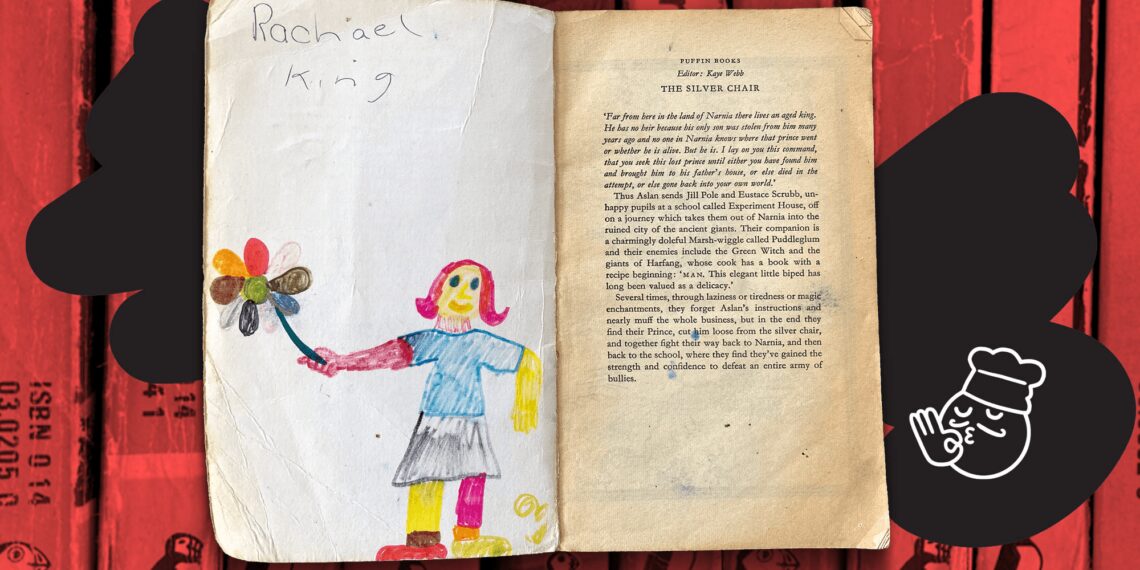 Rachael
King
PUFFIN BOOKS
Editor: Kaye Webb
THE SILVER CHAIR
‘Far from here in the land of Narnia there lives an aged king.
He has no heir because his only son was stolen from him many
years ago and no one in Narnia knows where that prince went
or whether he is alive. But he is. I lay on you this command,
that you seek this lost prince until either you have found him
and brought him to his father's house, or else died in the
attempt, or else gone back into your own world.’
Thus Aslan sends Jill Pole and Eustace Scrubb, un-
happy pupils at a school called Experiment House, off
on a journey which takes them out of Narnia into the
ruined city of the ancient giants. Their companion is
a charmingly doleful Marsh-wiggle called Puddleglum
and their enemies include the Green Witch and the
giants of Harfang, whose cook has a book with a
recipe beginning: ‘MAN. This elegant little biped has
long been valued as a delicacy.’
Several times, through laziness or tiredness or magic
enchantments, they forget Aslan's instructions and
nearly muff the whole business, but in the end they
find their Prince, cut him loose from the silver chair,
and together fight their way back to Narnia, and then
back to the school, where they find they've gained the
strength and confidence to defeat an entire army of
bullies.
ISBN 0 14
03.0205 0
14
41